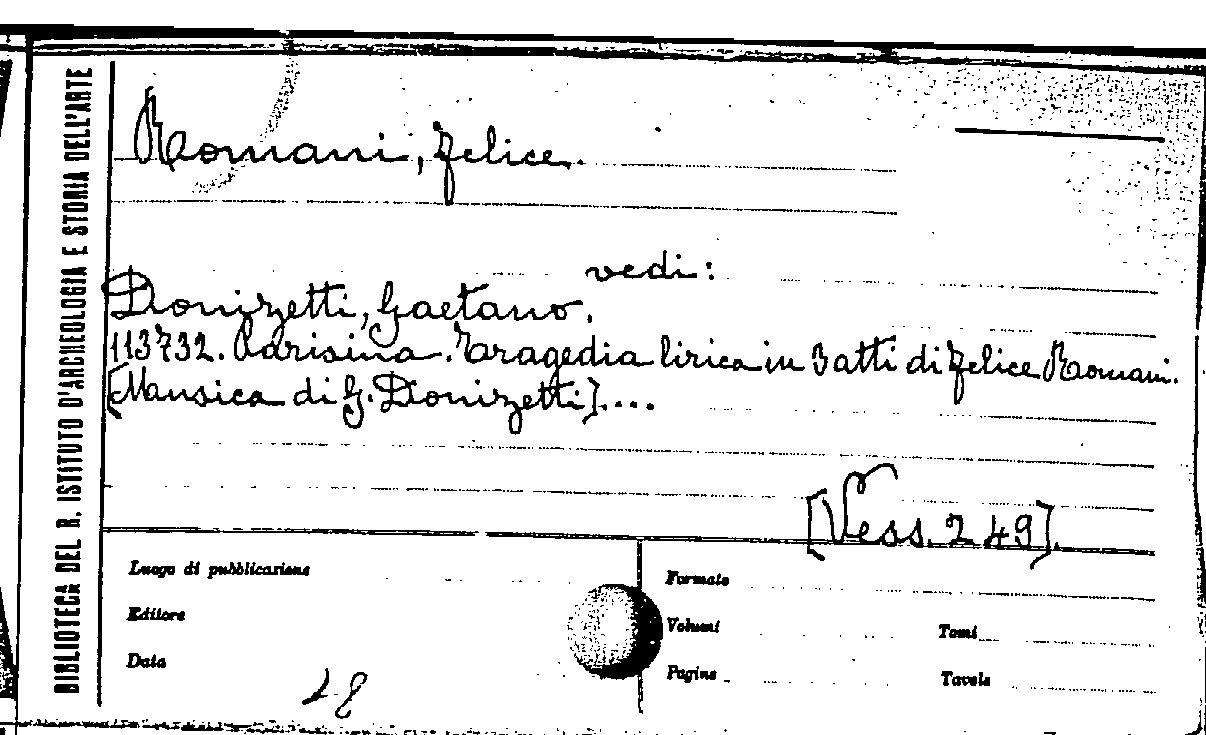 BIBLIOTECA DEL R. ISTITUTO D'ARCHEOLOGIA E STORIA DELL'ARTE
Romani, Felice.
vedi:
Donizetti, Gaetano.
113732. Parisina. Tragedia lirica in 3 atti di Felice Romani.
[Musica di G. Donizetti]....
[Vess. 249].
Luogo di pubblicazione
Formato
Editore
Volumi
Tomi
Data
Pagine
Tavole